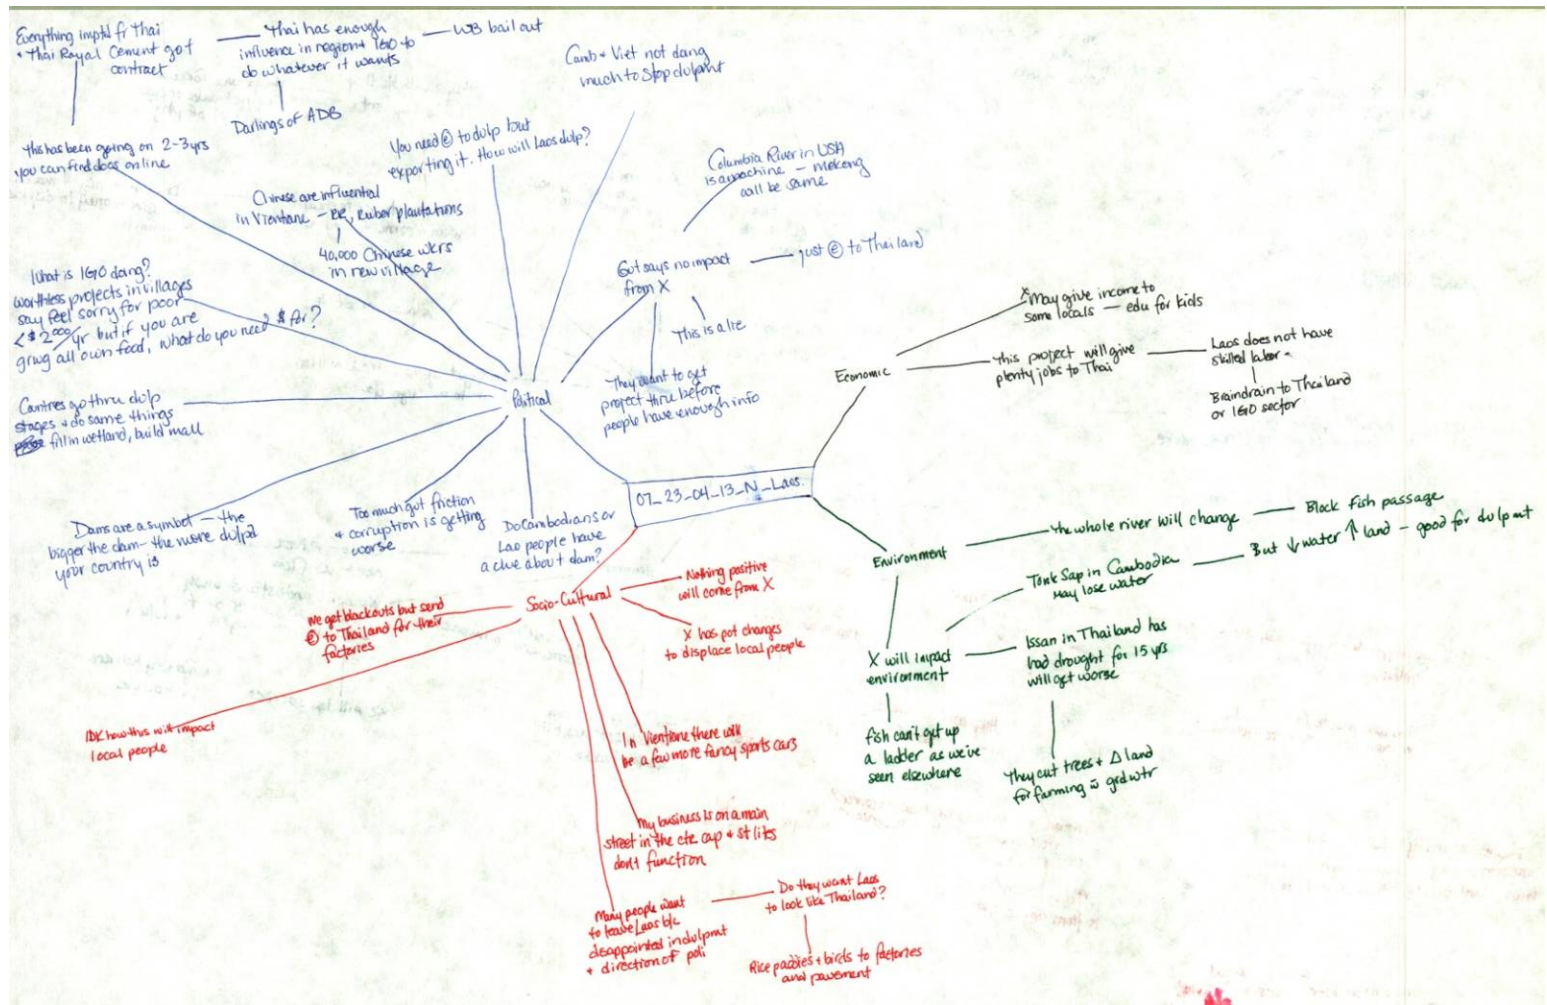 Everything imptd fr Thai
+ Thai Royal Cement got
contract
Thai has enough
influence in region + IGO to
do whatever it wants
WB bail out
Darlings of ADB
This has been going on 2-3 yrs
you can find docs online
Camb + Viet not doing
much to stop dvlpmt
You need ⓔ to dvlp but
exporting it. How will Laos dvlp?
Chinese are influential
in Vientane - RR, rubber plantations
40,000 Chinese wkrs
in new village
Columbia River in USA
is a machine - mekong
will be same
Gvt says no impact
from X
just ⓔ to Thailand
This is a lie
They want to get
project thru before
people have enough info
What is IGO doing?
worthless projects in villages
say feel sorry for poor
<$2⁰⁰⁰/yr but if you are
grwg all own food, what do you need $ for?
Countries go thru dvlp
stages + do same things
fill in wetland, build mall
Political
Dams are a symbol - the
bigger the dam - the more dvlpd
your country is
Too much gvt friction
+ corruption is getting
worse
Do Cambodians or
Lao people have
a clue about dam?
07_23_04_13_N_Laos.
Economic
X May give income to
some locals - edu for kids
this project will give
plenty jobs to Thai
Laos does not have
skilled labor -
Braindrain to Thailand
or IGO sector
Environment
The whole river will change
Block fish passage
Tonk Sap in Cambodia
may lose water
But ↓ water ↑ land - good for dvlpmt
X will impact
environment
Issan in Thailand has
had drought for 15 yrs
will get worse
fish can't get up
a ladder as we've
seen elsewhere
They cut trees + Δ land
for farming w̄ grdwtr
Socio-Cultural
Nothing positive
will come from X
X has pot changes
to displace local people
We get blackouts but send
ⓔ to Thailand for their
factories
IDK how this will impact
local people
In Vientiane there will
be a few more fancy sports cars
My business is on a main
street in the ctr cap + st lites
don't function
Many people want
to leave Laos b/c
disappointed in dvlpmt
+ direction of poli
Do they want Laos
to look like Thailand?
Rice paddies + birds to factories
and pavement